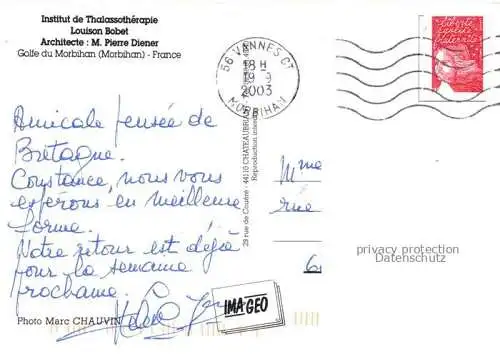 Institut de Thalassothérapie
Louison Bobet
Architecte : M. Pierre Diener
Golfe du Morbihan (Morbihan) - France
56 VANNES CT
18 H
19 9
2003
MORBIHAN
liberté
égalité
fraternité
Amicale pensée de
Bretagne.
Constance, nous vous
espérons en meilleure
forme.
Notre retour est déjà
pour la semaine
prochaine.
29 rue de Coueré - 44110 CHATEAUBRI
Reproduction inter
Mme
rue
6
privacy protection
Datenschutz
IMAGEO
Photo Marc CHAUVIN